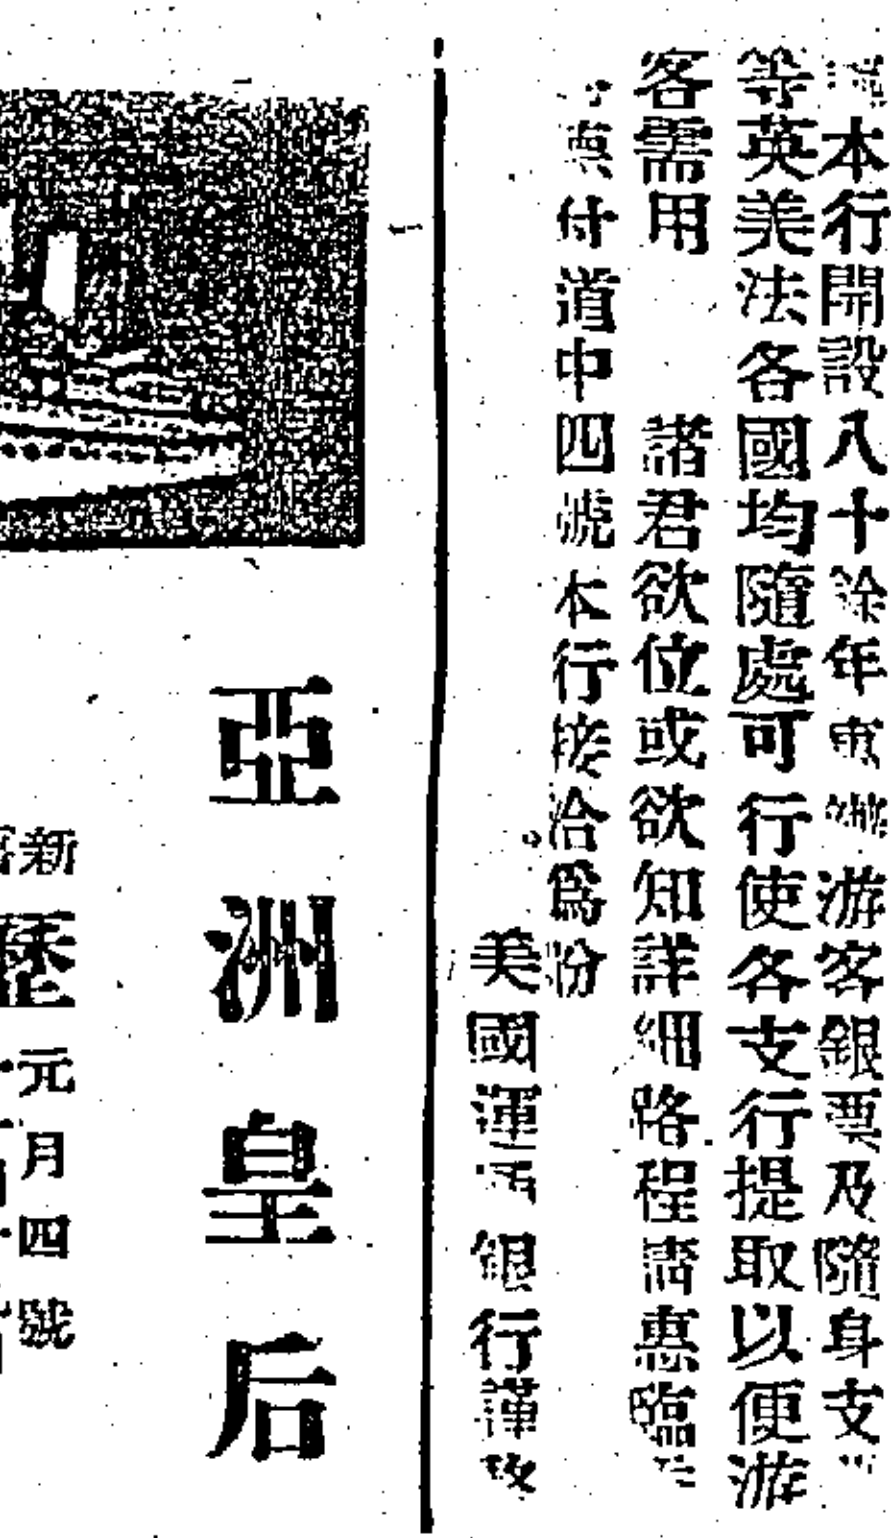 本行開設八十餘年專辦游客銀票及隨身支
等英美法各國均隨處可行使各支行提取以便游
客需用　諸君欲位或欲知詳細路程請惠臨
付道中四號本行接洽為
美國運通銀行謹啟
亞洲皇后
新
歷
元月四號